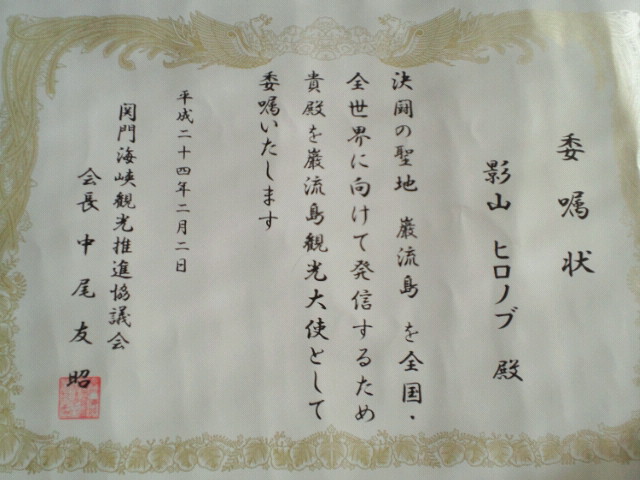 委嘱状
影山 ヒロノブ 殿
決闘の聖地 巌流島 を全国・
全世界に向けて発信するため
貴殿を巌流島観光大使として
委嘱いたします
平成二十四年二月二日
関門海峡観光推進協議会
会長 中尾友昭